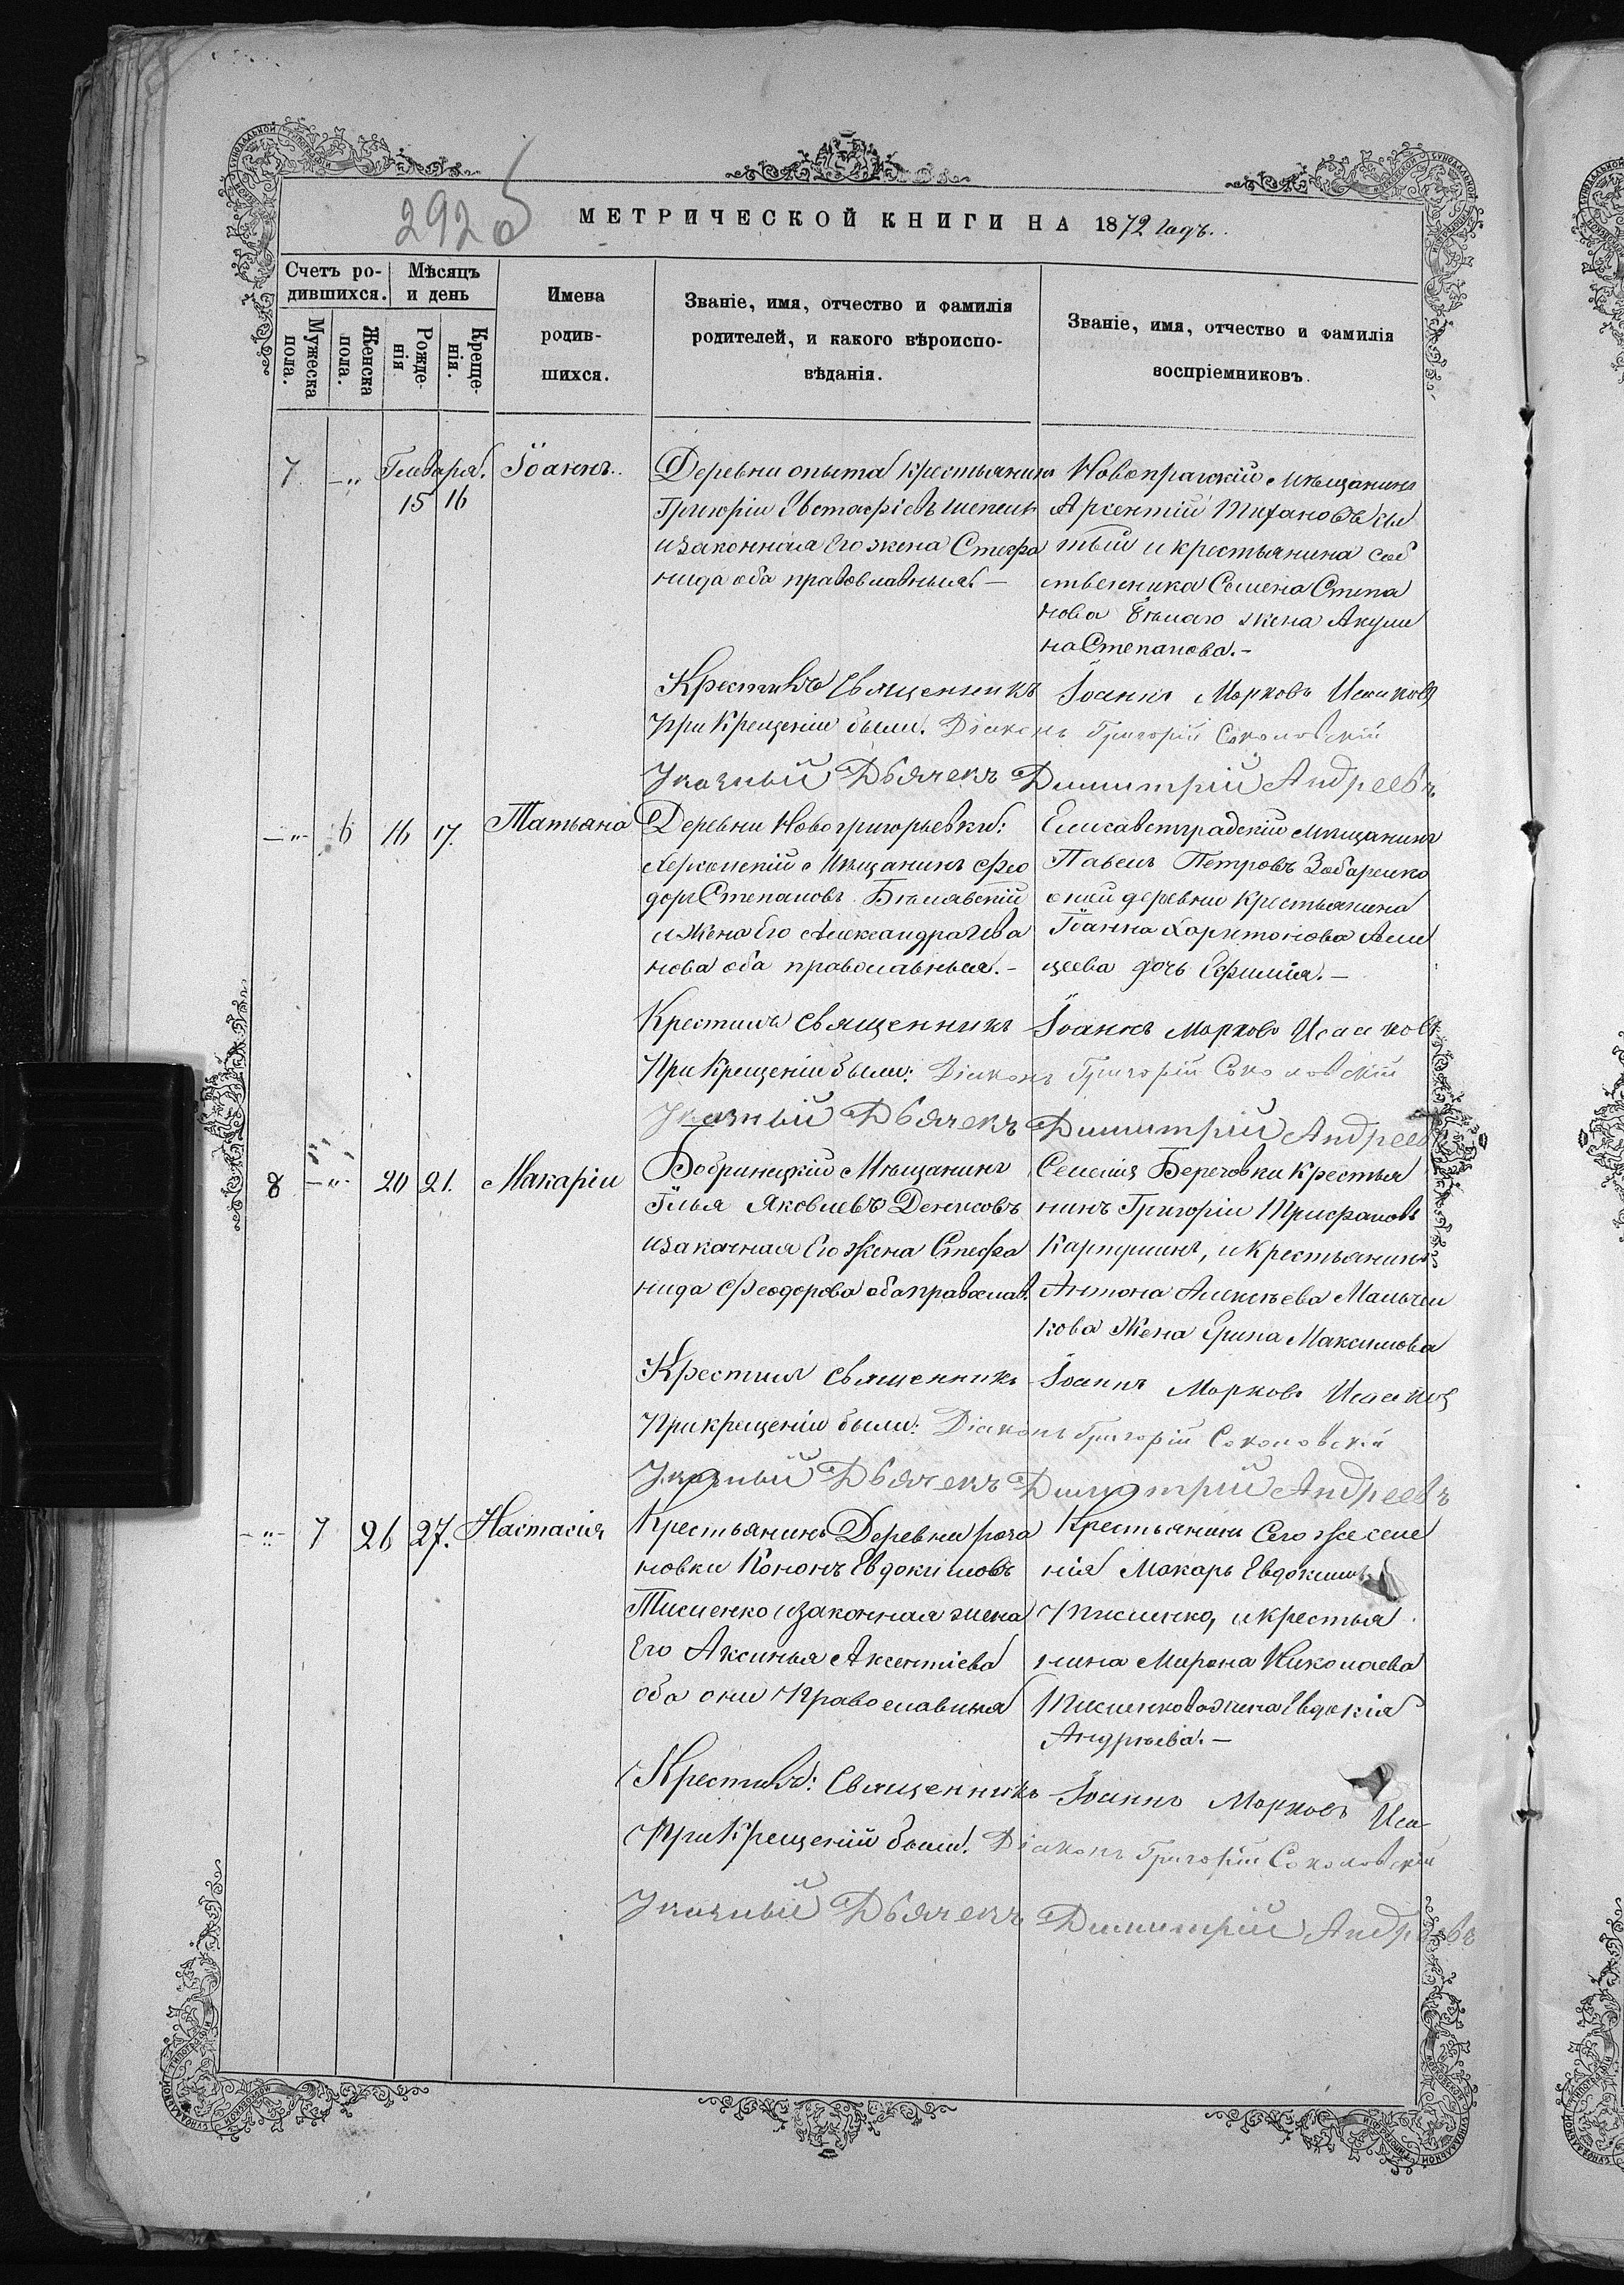 292 об
МЕТРИЧЕСКОЙ КНИГИ НА 1872 годъ.
Счетъ ро-
дившихся.
Мѣсяцъ
и день
Мужеска
пола.
Женска
пола.
Рожде-
нія
Креще-
нія.
Имена
родив-
шихся.
Званіе, имя, отчество и фамилія
родителей, и какого вѣроиспо-
вѣданія.
Званіе, имя, отчество и фамилія
воспріемниковъ.
7 -"- Генваря. 15 16 Іоаннъ.
Деревни опыта крестьянинъ
Григорій Евстафіевъ
изаконная Его жена Стефа
нида оба православныя. —
Новопражскій мѣщанинъ
Арсентій
и крестьянина соб
ственника Семена Степа
нова жена Акули
на Степанова. —
Крестилъ Священникъ Іоаннъ Марковъ Исаковъ
При Крещеніи были: Діаконъ Григорій Соколовскій
Указный Дьячекъ Димитрій Андреевъ
-"- 6 16 17. Татьяна
Деревни Новогригорьевки:
Херсонскій Мѣщанинъ Фео
доръ Степановъ Бѣлявскій
и Жена Его Александра Ива
нова оба православныя. —
Елисаветградскій мѣщанинъ
Павелъ Петровъ
оной деревни Крестьянина
Іоанна Харитонова
цева дочь Ефимія. —
Крестилъ священникъ Іоаннъ Марковъ Исааковъ
При Крещеніи были: Діаконъ Григорій Соколовскій
Указный Дьячекъ Димитрій Андреевъ
8 -"- 20 21. Макарій
Бобринецкій Мѣщанинъ
Илья Яковлевъ Денисовъ
изаконная Его Жена Стефа
нида Феодорова оба православ.
Селенія Береговки Крестья
нинъ Григорій
и Крестьянина
Антона Алексѣева Мальчен
кова Жена Ерина Максимова
Крестилъ священникъ Іоаннъ Марковъ Исааковъ
При крещеніи были: Діаконъ Григорій Соколовскій
Указный Дьячекъ Димитрій Андреевъ
-"- 7 26 27. Настасія
Крестьянинъ Деревни рога
новки Кононъ Евдокимовъ
Тисменко изаконная жена
Его Аксинья Аксентіева
оба они Православныя
Крестьянинъ Сего же селе
нія Макаръ Евдокимовъ
Тисменко, и крестья
нина Мирона Николаева
Тисменкова жена Евдокія
Андрѣева. —
Крестилъ: Священникъ Іоаннъ Марковъ Иса-
При Крещеніи были: Діаконъ Григорій Соколовскій
Указный Дьячекъ Димитрій Андреевъ